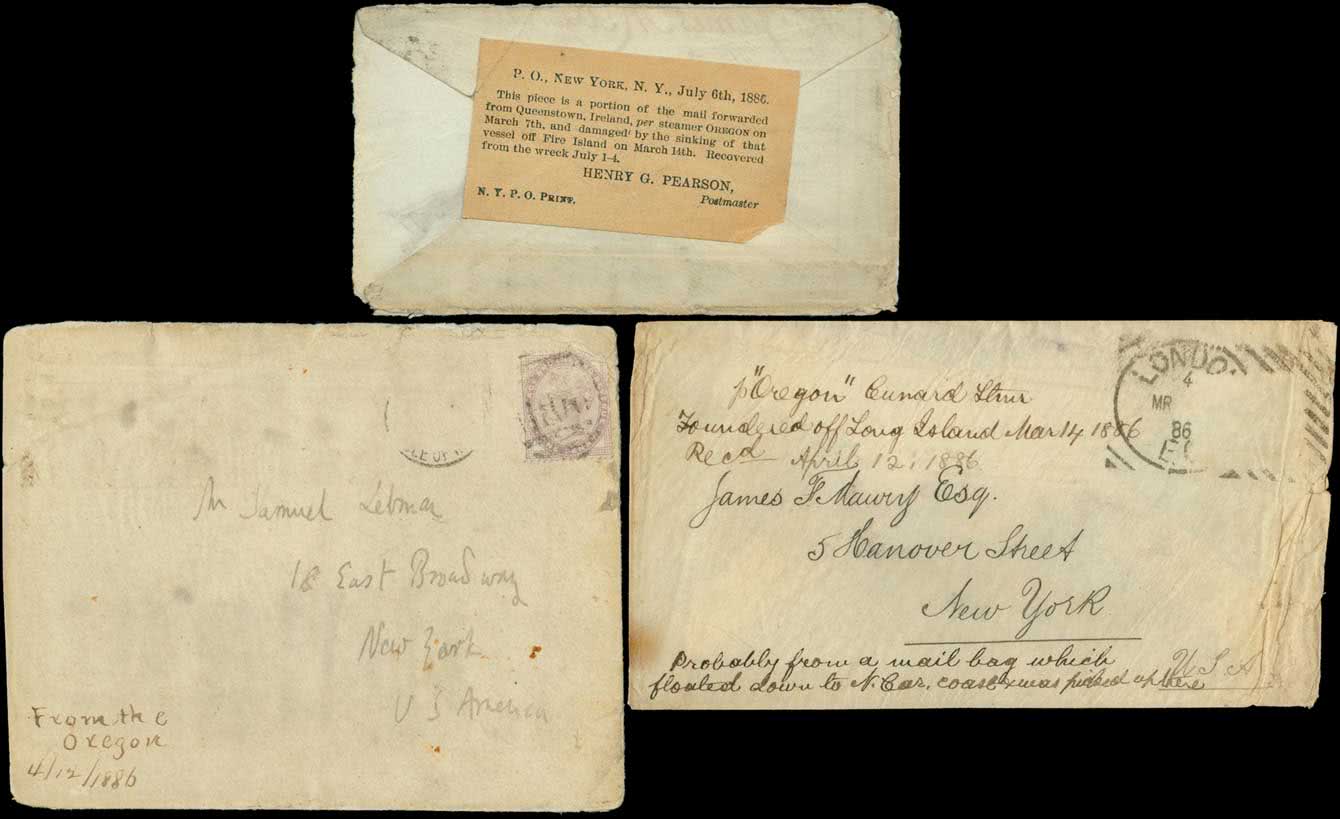 P. O., NEW YORK, N. Y., July 6th, 1886.
This piece is a portion of the mail forwarded
from Queenstown, Ireland, per steamer OREGON on
March 7th, and damaged by the sinking of that
vessel off Fire Island on March 14th. Recovered
from the wreck July 1-4.
HENRY G. PEARSON,
N. Y. P. O. PRINT. Postmaster
LE OF
Mr Samuel Lebman
18 East Broadway
New York
U S America
From the
Oregon
4/12/1886
LONDO
4
MR
86
E.C
p "Oregon" Cunard Stmr
Foundered off Long Island Mar 14 1886
Recd April 12, 1886
James F Maury Esq.
5 Hanover Street
New York
U S A
Probably from a mail bag which
floated down to N. Car. coast & was picked up there